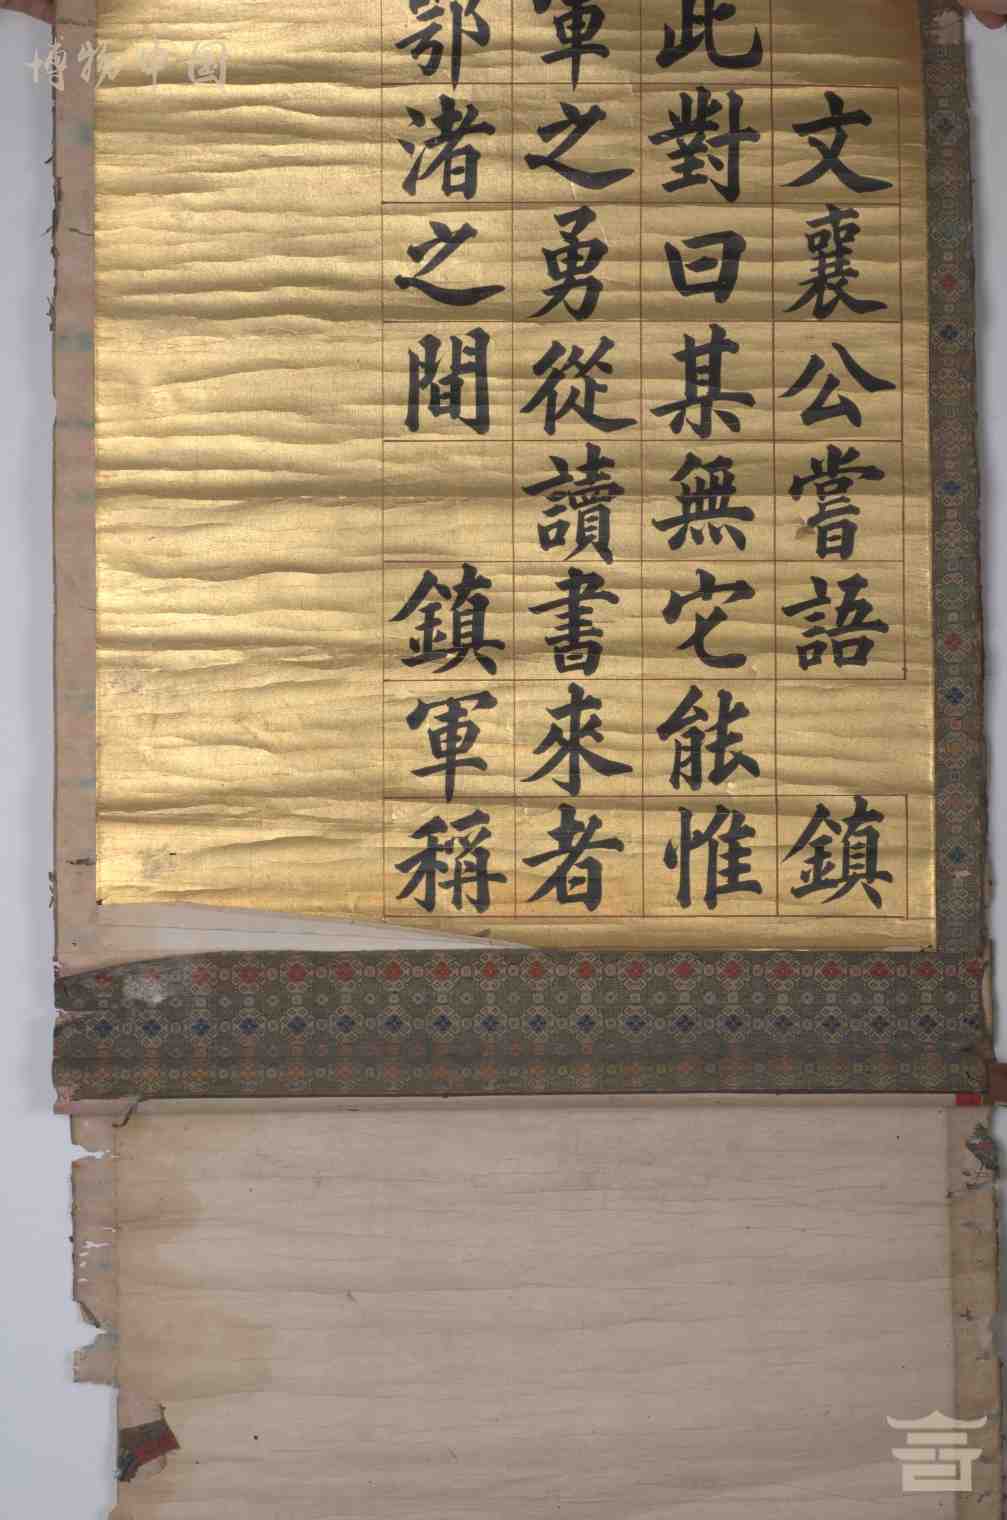 博物中国
文襄公嘗語 鎮
此對曰某無它能惟
軍之勇從讀書來者
鄂渚之間 鎮軍稱